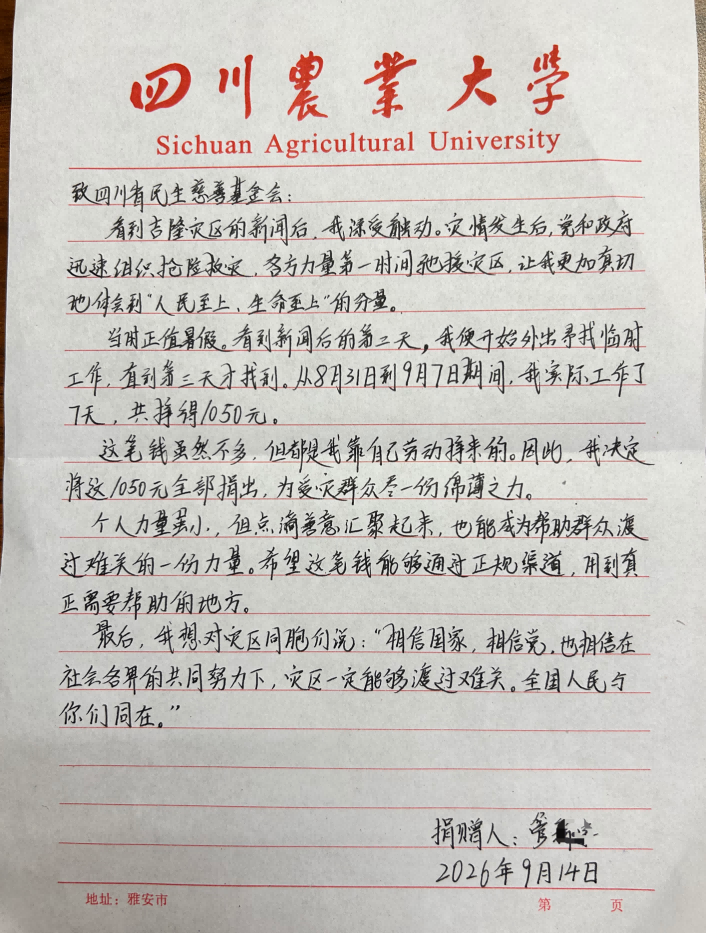 四川農業大学
Sichuan Agricultural University
致四川省民生慈善基金会：
看到吉隆灾区的新闻后，我深受触动。灾情发生后，党和政府
迅速组织抢险救灾，各方力量第一时间驰援灾区，让我更加真切
地体会到“人民至上、生命至上”的分量。
当时正值暑假。看到新闻后的第二天，我便开始外出寻找临时
工作，直到第三天才找到。从8月31日到9月7日期间，我实际工作了
7天，共挣得1050元。
这笔钱虽然不多，但都是我靠自己劳动挣来的。因此，我决定
将这1050元全部捐出，为受灾群众尽一份绵薄之力。
个人力量虽小，但点滴善意汇聚起来，也能成为帮助群众渡
过难关的一份力量。希望这笔钱能够通过正规渠道，用到真
正需要帮助的地方。
最后，我想对灾区同胞们说：“相信国家，相信党，也相信在
社会各界的共同努力下，灾区一定能够渡过难关。全国人民与
你们同在。”
捐赠人：管
2026年9月14日
地址：雅安市
第 页